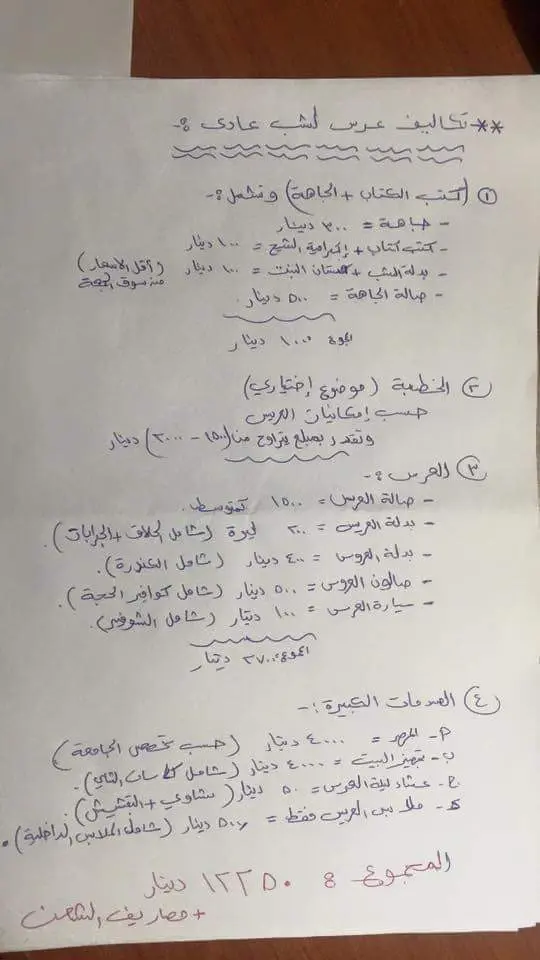 ** تكاليف عرس لشب عادي :-
① (كتب الكتاب + الجاهة) وتشمل :-
- جاهة = ٣٠٠ دينار
- كتب كتاب + إكرامية الشيخ = ١٠٠ دينار
- بدلة الشب + فستان البنت = ١٠٠ دينار (وأقل الاسعار من سوق الجمعة)
- صالة الجاهة = ٥٠٠ دينار.
المجموع ١٠٠٠ دينار
② الخطبة (موضوع إختياري)
حسب إمكانيات العريس
وتقدر بمبلغ يتراوح من (١٥٠٠ - ٢٠٠٠) دينار
③ العرس :-
- صالة العرس = ١٥٠٠ كمتوسط.
- بدلة العريس = ٢٠٠ ليرة (شامل الحلاق + الجرابات).
- بدلة العروس = ٤٠٠ دينار (شامل التنورة).
- صالون العروس = ٥٠٠ دينار (شامل كوافير الحجة).
- سيارة العرس = ١٠٠ دينار (شامل الشوفير).
المجموع: ٢٧٠٠ دينار
④ الصدمات الكبيرة :-
أ- المهر = ٤٠٠٠ دينار (حسب تخصص الجامعة)
ب- تجهيز البيت = ٤٠٠٠ دينار (شامل كاسات الشاي).
ج- عشاء ليلة العرس = ٥٠ دينار (مشاوي +).
د- ملابس العريس فقط = ٥٠٠ دينار (شامل الملابس الداخلية).
المجموع : ١٢٢٥٠ دينار
+ مصاريف الشحن